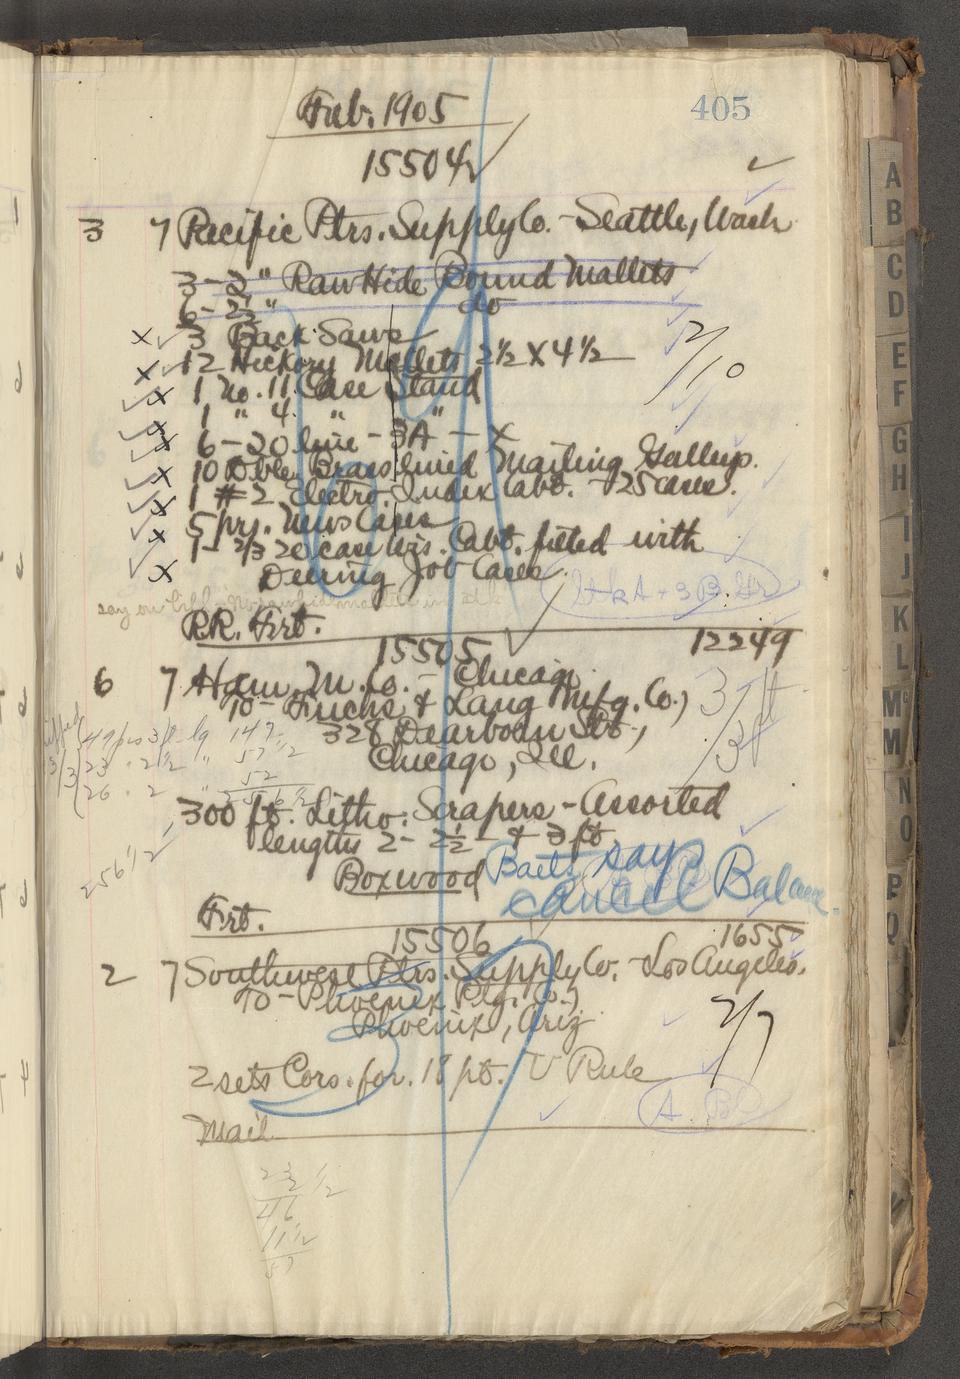 405
Feb. 1905
15504
3 7 Pacific Ptrs. Supply Co. - Seattle, Wash
3 - 2" Raw Hide Bound Mallets
6 - 2½" do
x ✓ 3 Back Saws
x ✓ 12 Hickory Mallets 2½ X 4½
2/10
✓ x 1 No. 11. Case Stand
✓ x 1 " 4. " "
✓ x 6 - 20 line - 3A - X
✓ x 10 Dble Brass lined Mailing Galleys.
✓ x 1 #2 Electro. Index Cabt. - 25 cases.
✓ x 5 prs. News Cases
✓ x 1 - 2/3 20 case Wis. Cabt. fitted with
Deering Job Cases.
St & A + 3 B. Gr
say on bill
RR. Frt. 12249
15505
6 7 Ham. M. Co. - Chicago
To - Fuchs & Lang Mfg. Co.,
328 Dearborn St.,
Chicago, Ill.
3/ft
3 ft
49 pcs 3 ft lg 147
23 " 2½ " 57½
26 " 2 " 52
256½
300 ft. Litho. Scrapers - Assorted
lengths 2 - 2½ - & 3 ft
Boxwood
says
cancel Balance
256½
Frt. 1655
15506
2 7 Southwest Ptrs. Supply Co. - Los Angeles.
To - Phoenix Ptg. Co.,
Phoenix, Ariz
2/7
2 sets Cors. for. 18 pt. V Rule
Mail
23 ½
2
46
11½
57
A
B
C
D
E
F
G
H
I
J
K
L
Mc
M
N
O
P
Q